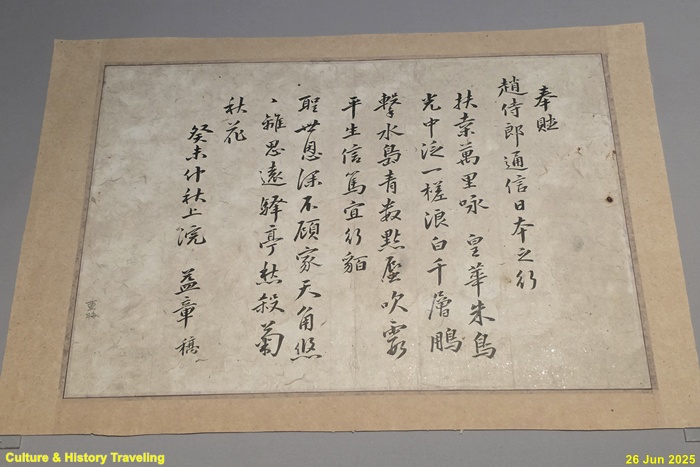 奉贐
趙侍郎通信日本之行
扶桒萬里咏 皇華朱鳥
光中泛一槎浪白千層鵬
擊水島青數點蜃吹霞
平生信篤宜行貊
聖世恩深不顧家天角悠
〻離思遠驛亭愁殺菊
秋花
癸未仲秋上浣 益章 稿
Culture & History Traveling
26 Jun 2025